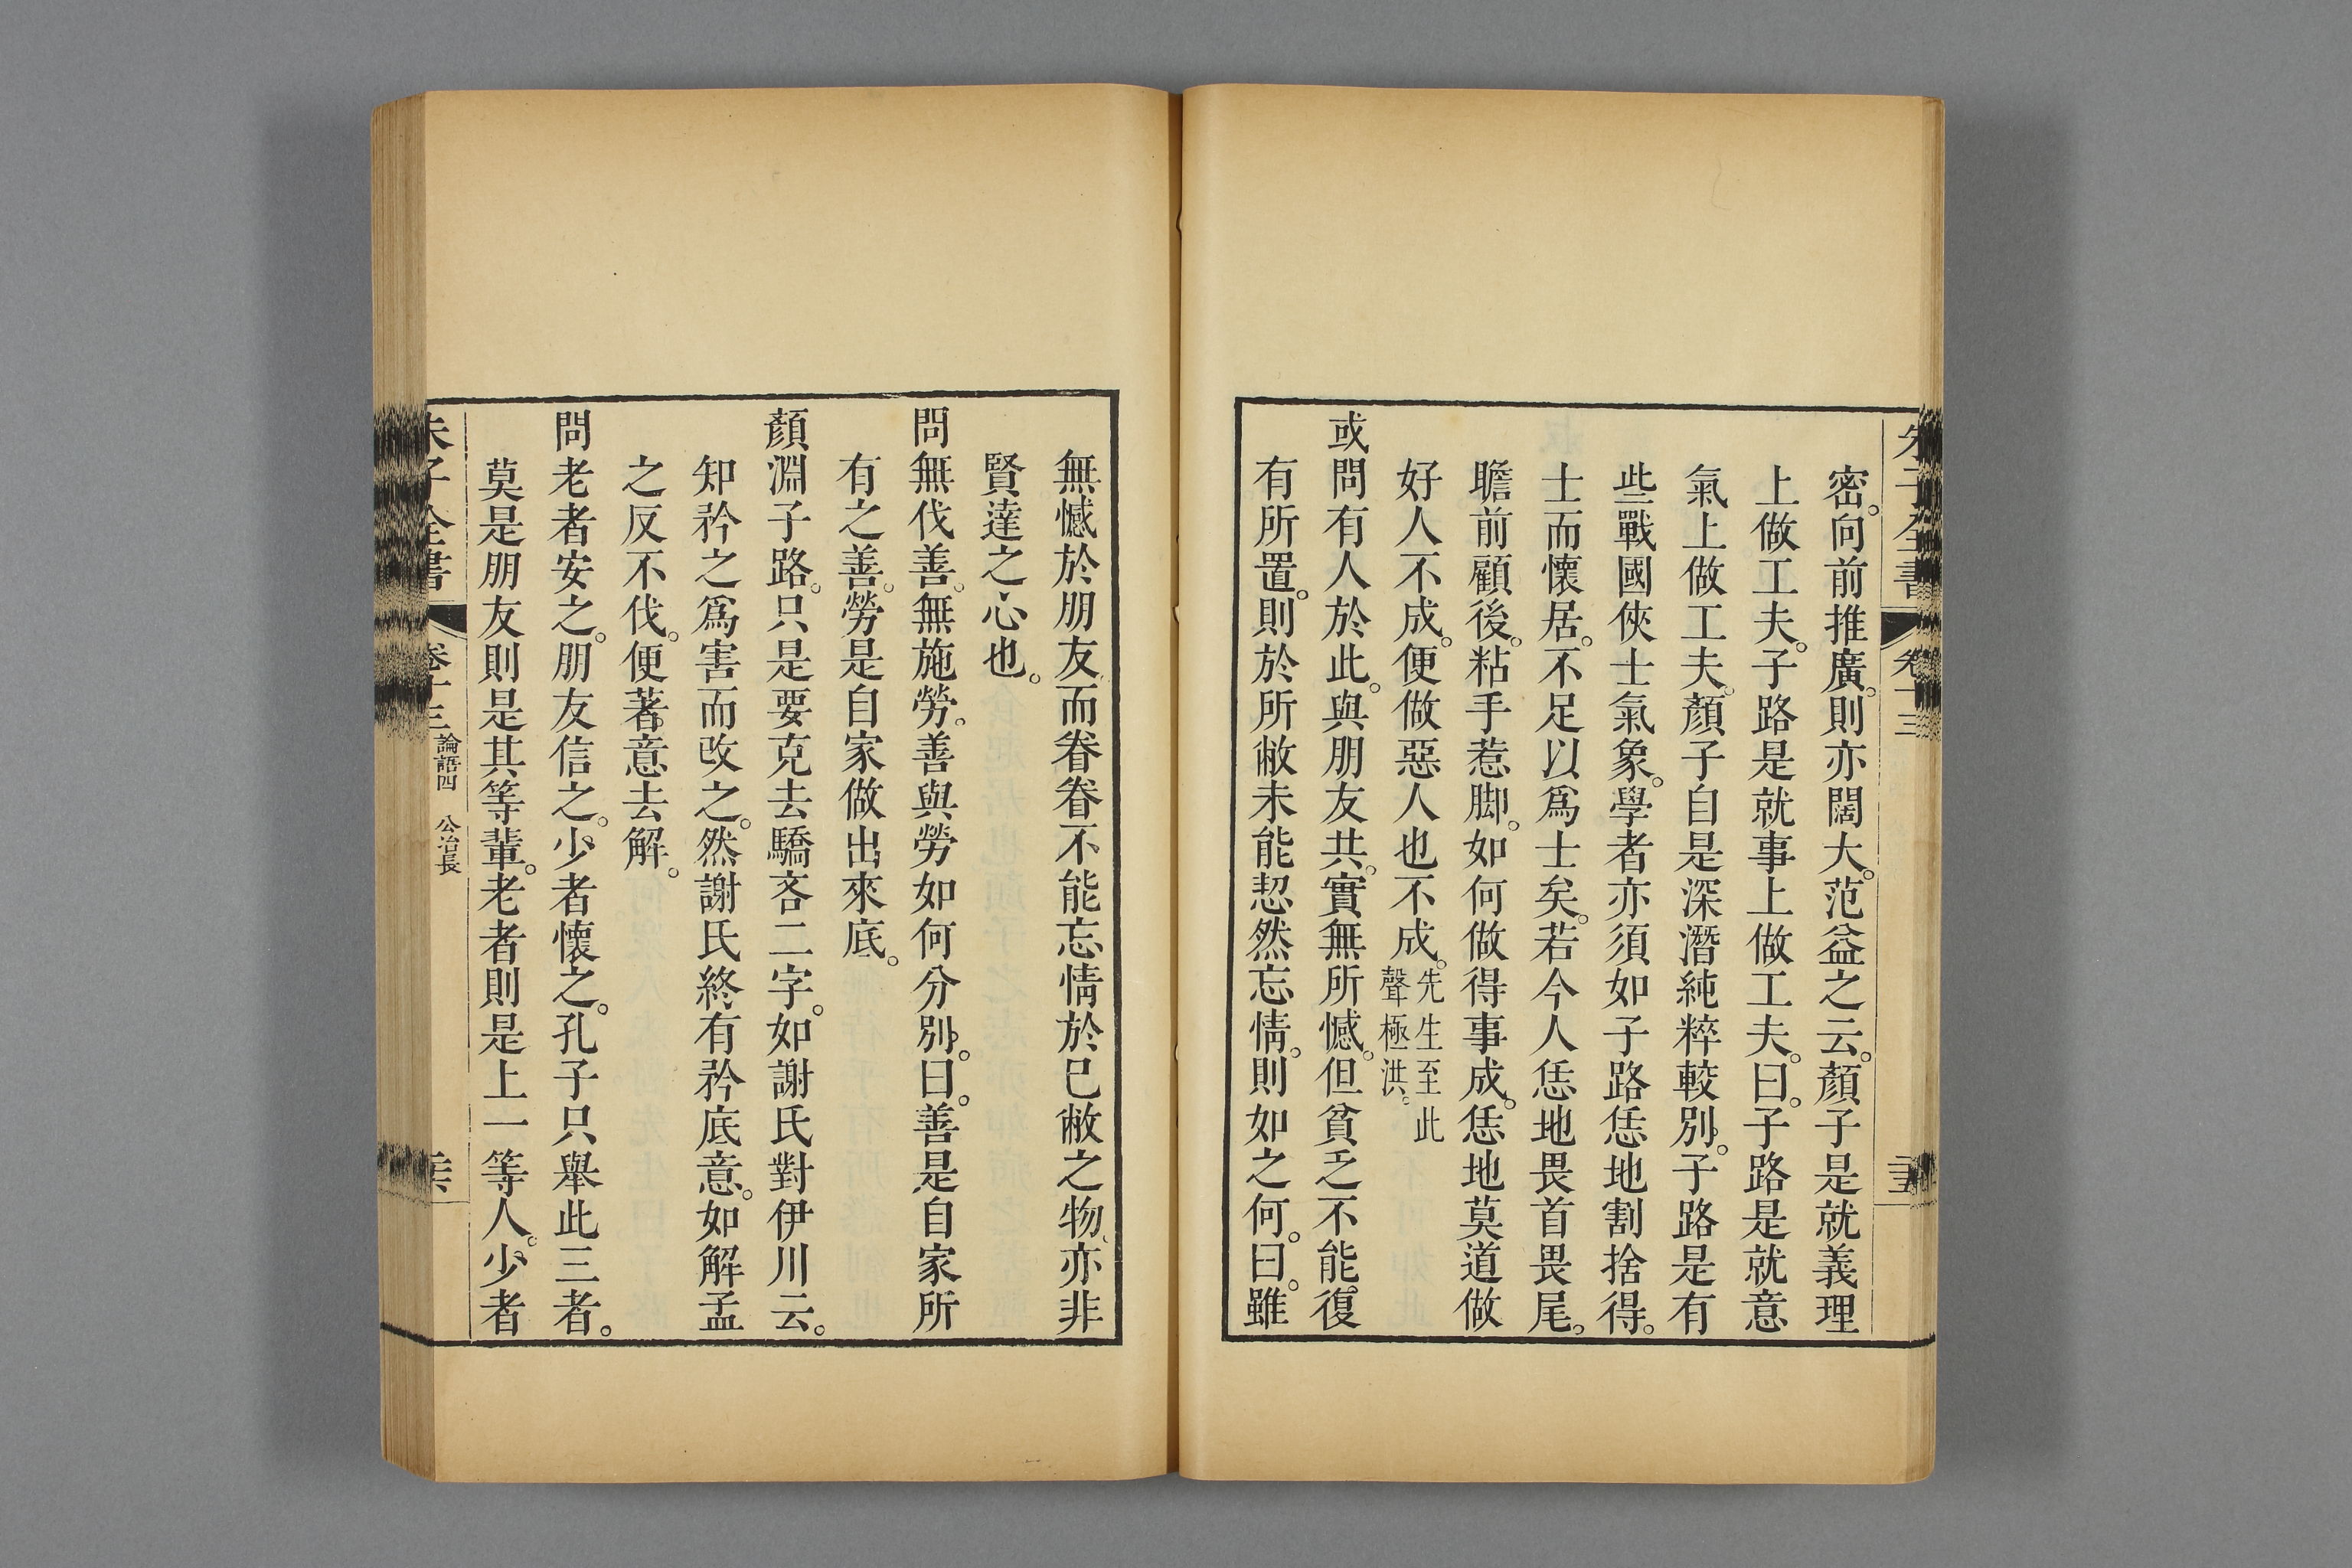 密。向前推廣。則亦闊大。范益之云。顏子是就義理
上做工夫。子路是就事上做工夫。曰。子路是就意
氣上做工夫。顏子自是深潛純粹較別。子路是有
些戰國俠士氣象。學者亦須如子路恁地割捨得。
士而懷居。不足以爲士矣。若今人恁地畏首畏尾。
瞻前顧後。粘手惹脚。如何做得事成。恁地莫道做
好人不成。便做惡人也不成。先生至此
聲極洪。
或問有人於此。與朋友共。實無所憾。但貧乏不能復
有所置。則於所敝未能恝然忘情。則如之何。曰。雖
無憾於朋友而眷眷不能忘情於已敝之物。亦非
賢達之心也。
問無伐善。無施勞。善與勞如何分別。曰。善是自家所
有之善。勞是自家做出來底。
顏淵子路。只是要克去驕吝二字。如謝氏對伊川云。
知矜之爲害而改之。然謝氏終有矜底意。如解孟
之反不伐。便著意去解。
問老者安之。朋友信之。少者懷之。孔子只舉此三者。
莫是朋友則是其等輩。老者則是上一等人。少者
朱子全書 卷十三 論語四 公冶長